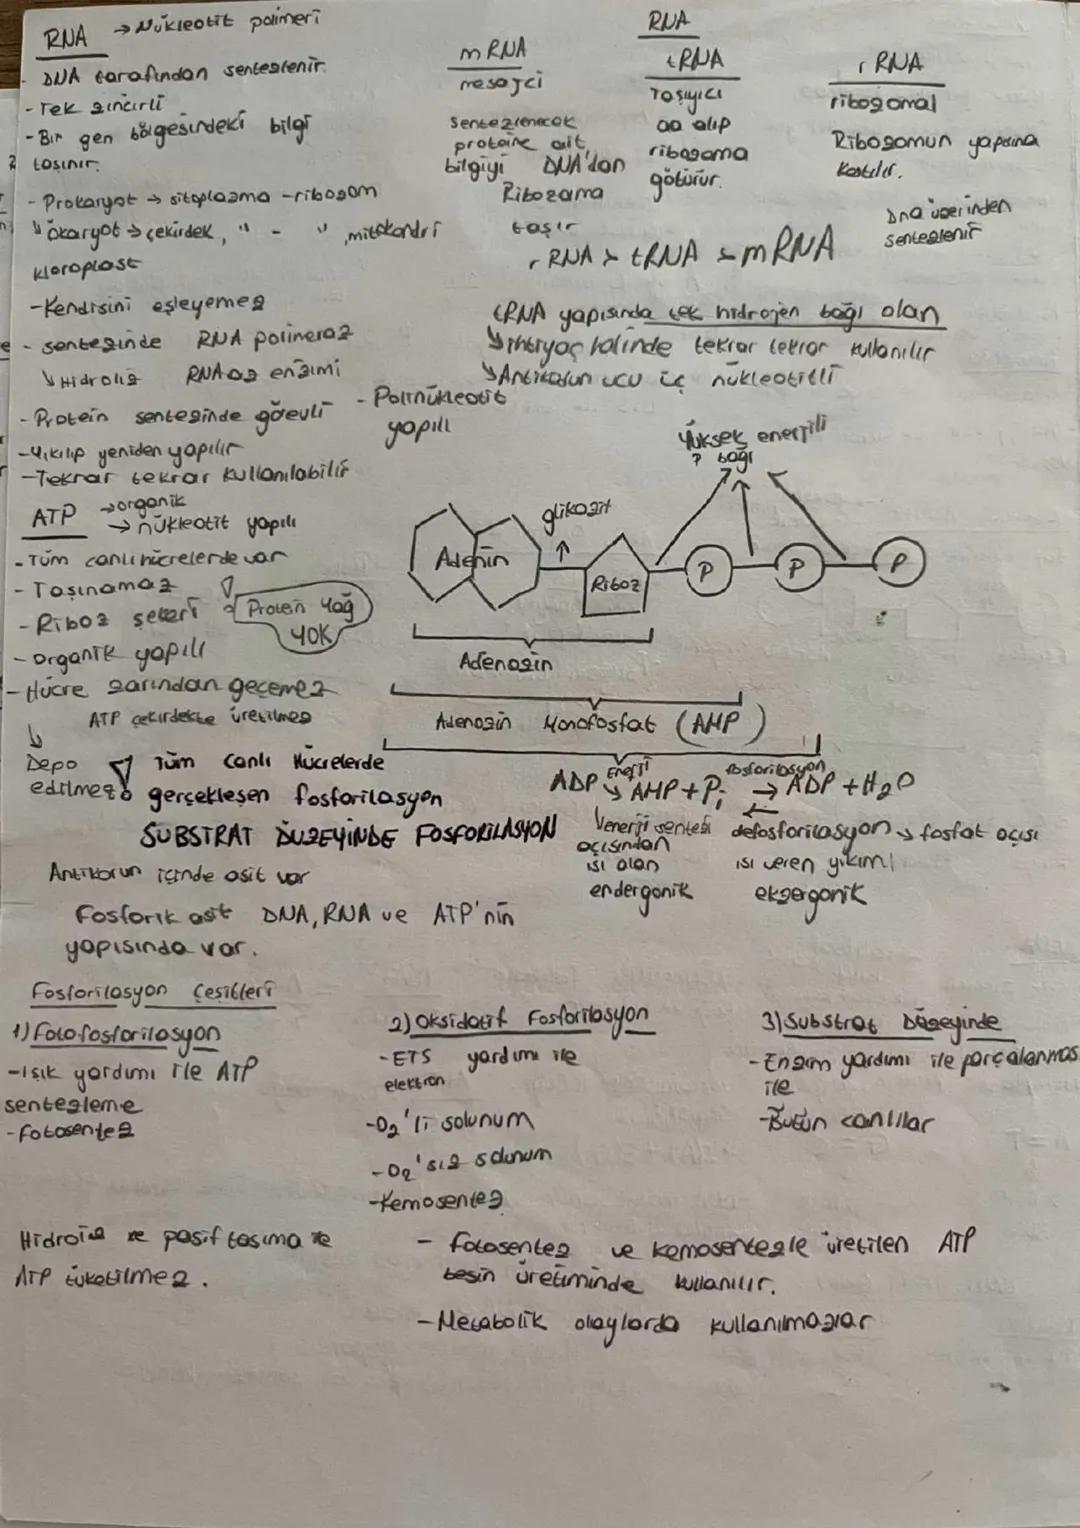 RNA → Nükleotit polimeri
DNA tarafından sentezlenir.
- Tek zincirli
- Bir gen bölgesindeki bilgi
taşınır.
- Prokaryot → sitoplazma - ribozom
ökaryot → çekirdek, " - " ,mitokondri
kloroplast
- Kendisini eşleyemez
- sentezinde RNA polimeraz
↳ Hidroliz RNAaz enzimi
- Protein sentezinde görevli
- Yıkılıp yeniden yapılır
- Tekrar tekrar kullanılabilir
- Polinükleotit
yapılı
RNA
mRNA
mesajcı
sentezlenecek
proteine ait
bilgiyi DNA'dan
Ribozoma
taşır
tRNA
Taşıyıcı
aa alıp
ribozoma
götürür.
rRNA
ribozomal
Ribozomun yapısına
katılır.
Dna üzerinden
sentezlenir
rRNA > tRNA > mRNA
tRNA yapısında tek hidrojen bağı olan
↳ ihtiyaç halinde tekrar tekrar kullanılır
↳ Antikodun ucu üç nükleotitli
ATP → organik
→ nükleotit yapılı
- Tüm canlı hücrelerde var
- Taşınamaz
- Riboz şekeri
Protein Yağ
YOK
- Organik yapılı
- Hücre zarından geçemez
ATP çekirdekte üretilmez
Depo
edilmez
Tüm canlı Hücrelerde
gerçekleşen fosforilasyon
SUBSTRAT DÜZEYİNDE FOSFORİLASYON
Yüksek enerjili
bağı
glikozit
Adenin
Riboz
P
P
P
Adenozin
Adenozin Monofosfat (AMP)
ADP Enerji AMP + Pi fosforilasyon → ADP + H₂O
enerji sentezi
açısından
ısı alan
endergonik
defosforilasyon → fosfat açısı
ısı veren yıkımı
ekzergonik
Antikorun içinde asit var
Fosforik asit DNA, RNA ve ATP'nin
yapısında var.
Fosforilasyon Çeşitleri
1) Fotofosforilasyon
- Işık yardımı ile ATP
sentezleme
- fotosentez
2) Oksidatif Fosforilasyon
- ETS yardımı ile
elektron
- O₂'li solunum
- O₂'siz solunum
- Kemosentez
3) Substrat Düzeyinde
- Enzim yardımı ile parçalanması
ile
- Bütün canlılar
Hidroliz ve pasif taşıma ile
ATP tüketilmez.
- fotosentez ve kemosentezle üretilen ATP
besin üretiminde kullanılır.
- Metabolik olaylarda kullanılmazlar